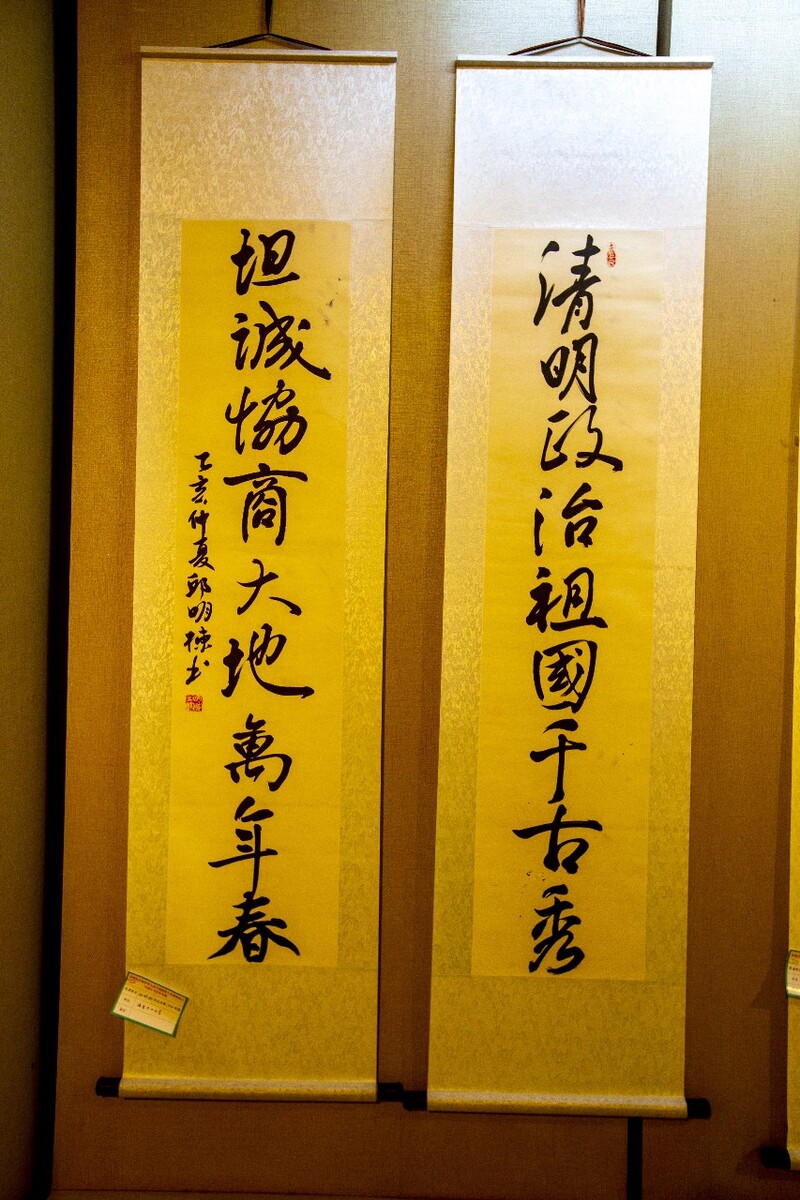 清明政治祖國千古秀
坦誠協商大地萬年春
乙亥仲夏郭明棟书